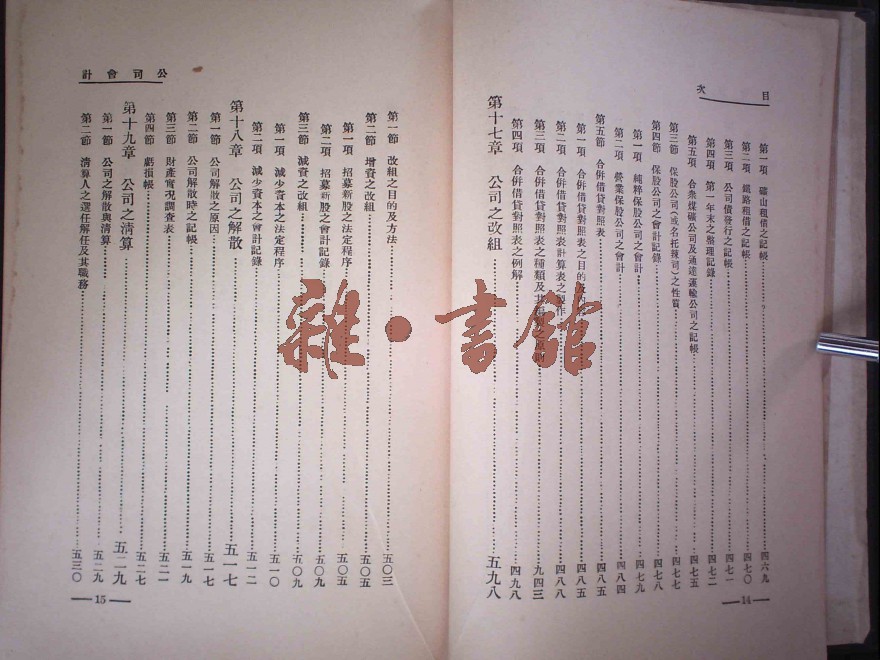 目次
第一項 礦山租借之記帳 四六九
第二項 鐵路租借之記帳 四七〇
第三項 公司債發行之記帳 四七一
第四項 第一年末之整理記錄 四七二
第五項 合衆煤礦公司及通達運輸公司之記帳 四七五
第三節 保股公司(或名托辣司)之性質 四七七
第四節 保股公司之會計記錄 四七八
第一項 純粹保股公司之會計 四七九
第二項 營業保股公司之會計 四八四
第五節 合併借貸對照表 四八五
第一項 合併借貸對照表之目的及 四八五
第二項 合併借貸對照表計算表之製作 四八八
第三項 合併借貸對照表之種類及其 九四三
第四項 合併借貸對照表之例解 四九八
第十七章 公司之改組 五九八
14
公司會計
第一節 改組之目的及方法 五〇三
第二節 增資之改組 五〇五
第一項 招募新股之法定程序 五〇五
第二項 招募新股之會計記錄 五〇九
第三節 減資之改組 五〇九
第一項 減少資本之法定程序 五一〇
第二項 減少資本之會計記錄 五一二
第十八章 公司之解散 五一七
第一節 公司解散之原因 五一七
第二節 公司解散時之記帳 五一九
第三節 財產實況調查表 五二一
第四節 虧損帳 五二七
第十九章 公司之清算 五二九
第一節 公司之解散與清算 五二九
第二節 清算人之選任解任及其職務 五三〇
15
雜·書館